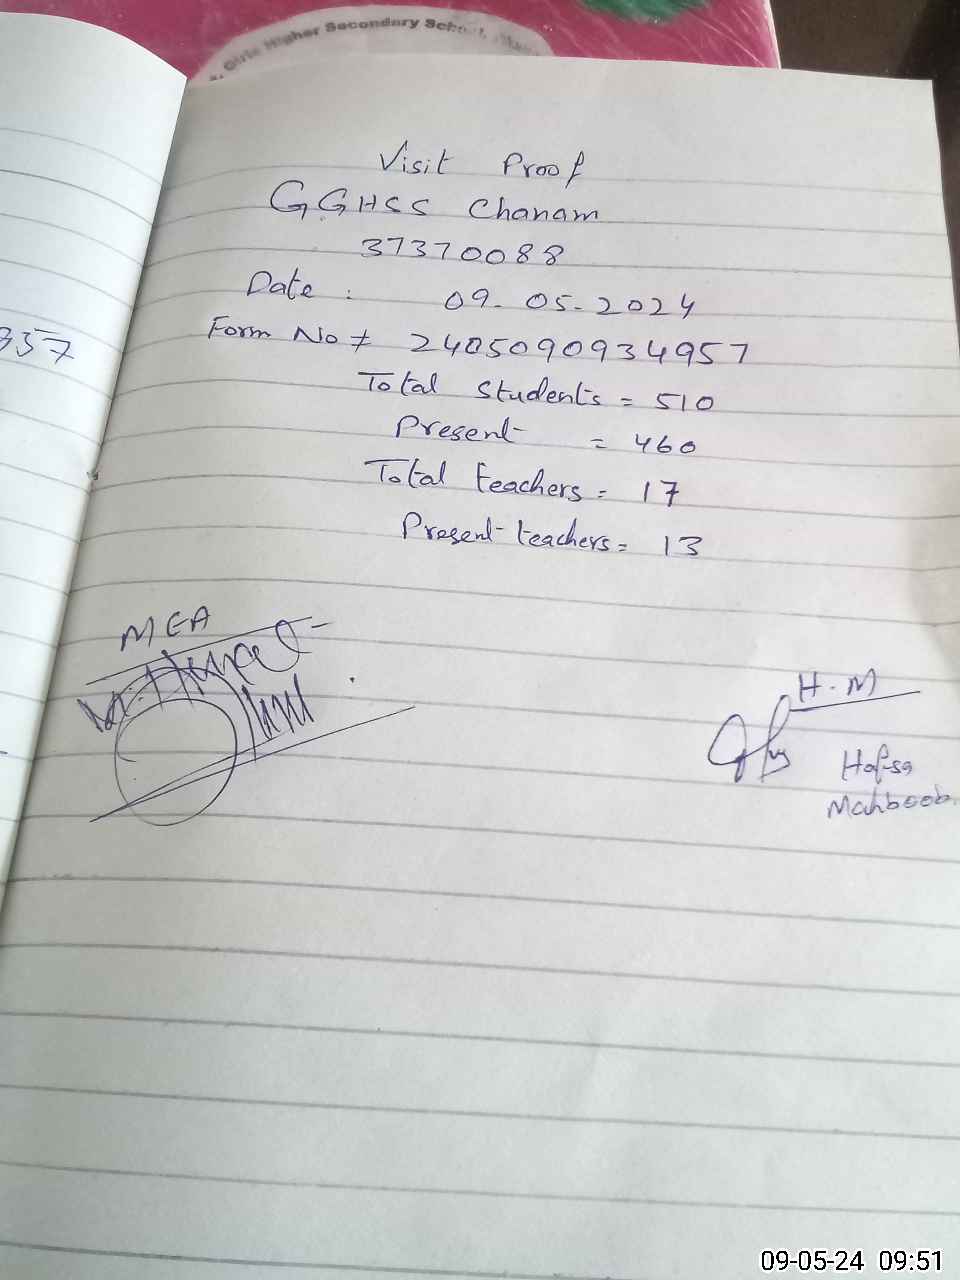 Girls Higher Secondary School,
Visit Proof
GGHSS Chanam
37370088
Date : 09-05-2024
357
Form No # 2405090934957
Total Students = 510
Present = 460
Total teachers = 17
Present teachers = 13
MEA
H.M
Hafsa
Mahboob
09-05-24 09:51